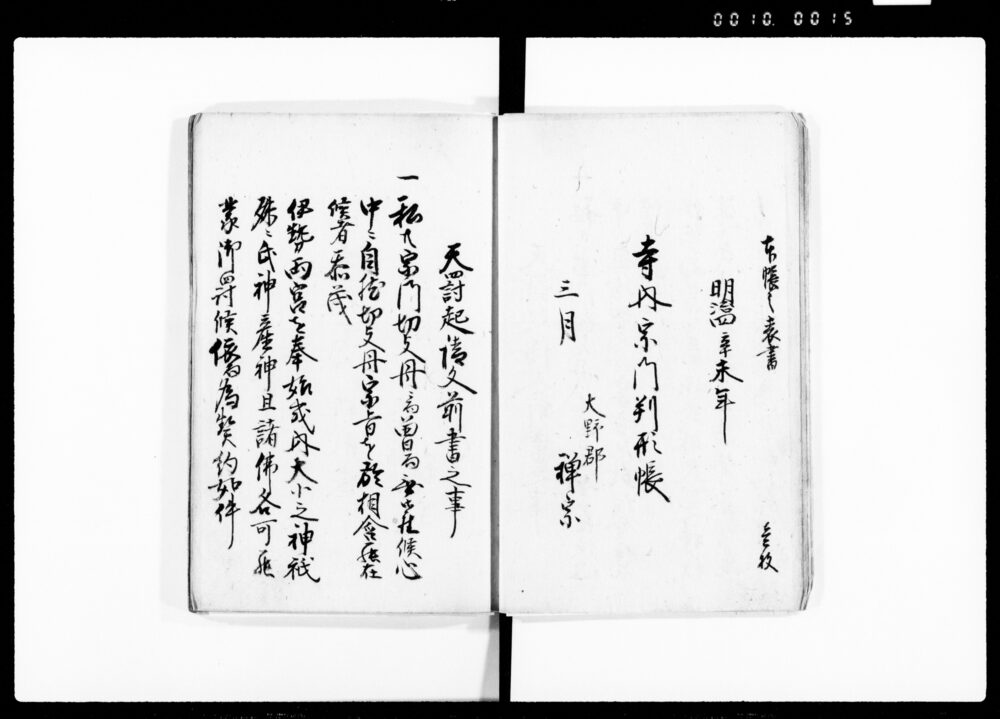 0010.0015
本帳之表書
明治四辛未年
寺内宗門判形帳
大野郡
三月 禅宗
壱枚
天罸起請文前書之事
一私共宗門切支丹ニ而曽而無御座候心
中ニ自然切支丹宗旨を於相含罷在
候者忝茂
伊勢両宮を奉始或内大小之神祇
殊ニ氏神産神且諸佛各可罷
蒙御罸候依而為契約如件